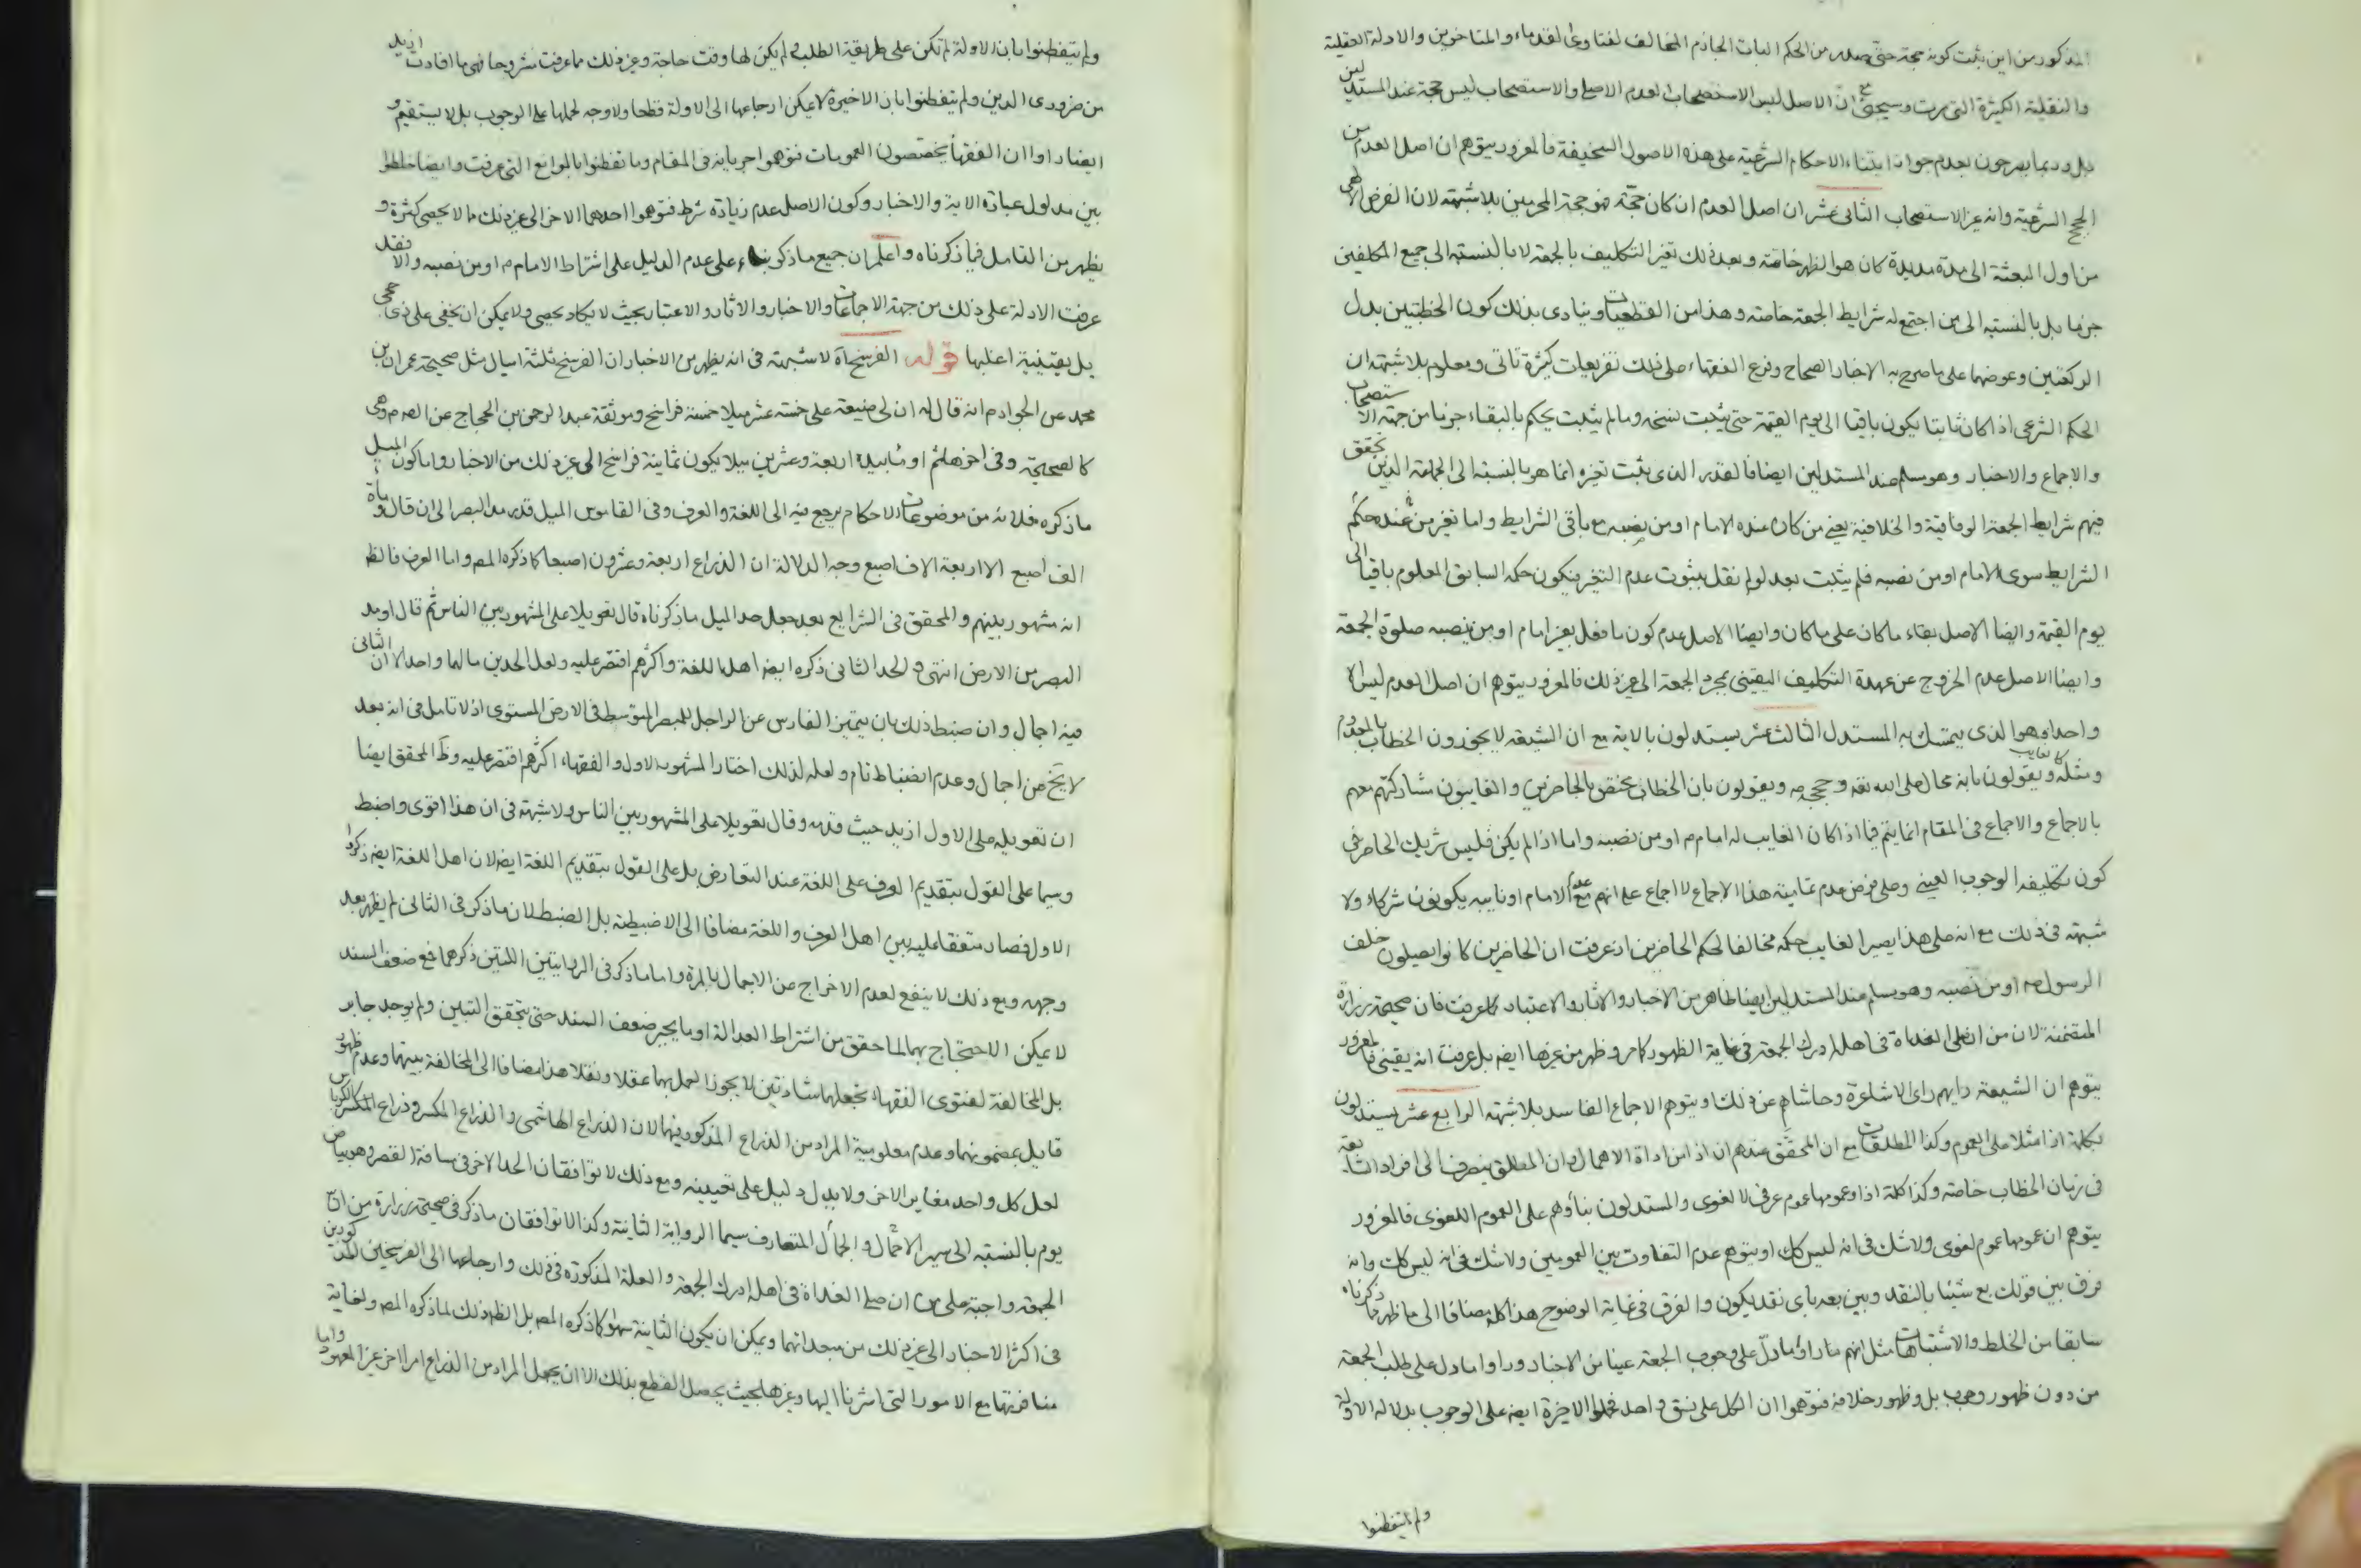 المذكور من اين يثبت كونه حجة حتى يصدر من الحكم البات الجازم المخالف لفتاوى القدماء والمتاخرين والادلة العقلية
والنقلية الكثيرة التى مرت وسيجئ ان الاصل ليس الاستصحاب لعدم الاصل والاستصحاب ليس حجة عند المستدلين
بل وربما يصرحون بعدم جواز ابتناء الاحكام الشرعية على هذه الاصول السخيفة فالمغرور يتوهم ان اصل العدم من
الحجج الشرعية وانه غير الاستصحاب الثانى عشر ان اصل العدم ان كان حجة فهو حجة المحرمين بلا شبهة لان الفرض الظهر
من اول البعثة الى مدة مديدة كان هو الظهر خاصة وبعد ذلك تغير التكليف بالجمعة لا بالنسبة الى جميع المكلفين
جزما بل بالنسبة الى من اجتمع له شرايط الجمعة خاصة وهذا من القطعيات وينادى بذلك كون الخطبتين بدل
الركعتين وعوضهما على ما صرح به الاخبار الصحاح وفرع الفقهاء على ذلك تفريعات كثيرة تاتى ومعلوم بلا شبهة ان
الحكم الشرعى اذا كان ثابتا يكون باقيا الى يوم القيمة حتى يثبت نسخه وما لم يثبت يحكم بالبقاء جزما من جهة الاستصحاب
والاجماع والاخبار وهو مسلم عند المستدلين ايضا فالقدر الذى يثبت تغيره انما هو بالنسبة الى الجماعة الذين تحقق
فيهم شرايط الجمعة الوفاقية والخلافية يعنى من كان عنده الامام او من نصبه مع باقى الشرايط واما تغير من عنده حكم
الشرايط سوى الامام او من نصبه فلم يثبت بعد لو لم نقل بثبوت عدم التغير فيكون حكمه السابق المعلوم باقيا الى
يوم القيمة وايضا الاصل بقاء ما كان على ما كان وايضا الاصل عدم كون ما فعل بغير امام او من نصبه صلوة الجمعة
وايضا الاصل عدم الخروج عن عهدة التكليف اليقينى بمجرد الجمعة الى غير ذلك فالمغرور يتوهم ان اصل العدم ليس الا
واحدا وهو الذى يتمسك به المستدل الثالث عشر يستدلون بالاية مع ان الشيعة لا يجوزون الخطاب بالمعدوم
ومثله كالغايب ويقولون بانه محال على الله تعه وحججه ويقولون بان الخطاب مختص بالحاضرين والغايبون مشاركتهم معهم
بالاجماع والاجماع فى المقام انما يتم فيما اذا كان الغايب له امام او من نصبه واما اذا لم يكن فليس شريك الحاضر فى
كون تكليفه الوجوب العينى وعلى فرض عدم تمامية هذا الاجماع لا اجماع على انهم مع عدم الامام او نايبه يكونون شركاء ولا
شبهة فى ذلك مع انه على هذا يصير الغايب حكمه مخالفا لحكم الحاضرين اذ عرفت ان الحاضرين كانوا يصلون خلف
الرسول ص او من نصبه وهو مسلم عند المستدلين ايضا ظاهر من الاخبار والاثار والاعتبار كما عرفت فان صحيحة زرارة
المتضمنة لان من صلى الغداة فى اهله ادرك الجمعة فى غاية الظهور كما مر وظهر من غيرها ايضه بل عرفت انه يقينى فالمغرور
يتوهم ان الشيعة رايهم راى الاشاعرة وحاشاهم عن ذلك او يتوهم الاجماع الفاسد بلا شبهة الرابع عشر يستدلون
بكلمة اذا مثلا على العموم وكذا المطلقات مع ان المحقق عندهم ان اذا من اداة الاهمال وان المطلق ينصرف الى افراد الشايعة
فى زمان الخطاب خاصة وكذا كلمة اذا وعمومها عموم عرفى لا لغوى والمستدلون بناؤهم على العموم اللغوى فالمغرور
يتوهم ان عمومها عموم لغوى ولا شك فى انه ليس كك او يتوهم عدم التفاوت بين العمومين ولا شك فى انه ليس كك وانه
فرق بين قولك بع شيئا بالنقد وبين بعه باى نقد يكون والفرق فى غاية الوضوح هذا كله مضافا الى ما ظهر مما ذكرناه
سابقا من الخلط والاشتباهات مثل انهم ما راوا ما دل على وجوب الجمعة عينا من الاخبار وراوا ما دل على طلب الجمعة
من دون ظهور وجوب بل وظهور خلافه فتوهموا ان الكل على نسق واحد فحملوا الاخيرة ايضه على الوجوب بدلالة الاولة
ولم يتفطنوا
ولم يتفطنوا بان الاولة لم تكن على طريقة الطلب لم يكن لها وقت حاجة وغير ذلك مما عرفت مشروحا فهى ما افادت ازيد
من ضرورى الدين ولم يتفطنوا بان الاخيرة لا يمكن ارجاعها الى الاولة قطعا ولا وجه لحملها على الوجوب بل لا يستقيم و
ايضا راوا ان الفقهاء يخصصون العمومات فتوهموا جريانه فى المقام وما تفطنوا بالموانع التى عرفت وايضا خلطوا
بين مدلول عبارة الاية والاخبار وكون الاصل عدم زيادة شرط فتوهموا احدهما الاخر الى غير ذلك مما لا يحصى كثرة و
يظهر من التامل فيما ذكرناه واعلم ان جميع ما ذكر بناء على عدم الدليل على اشتراط الامام او من نصبه والا فقد
عرفت الادلة على ذلك من جهة الاجماعات والاخبار والاثار والاعتبار بحيث لا يكاد يحصى ولا يمكن ان يخفى على ذى حجى
بل يقينية اغلبها قوله الفرسخ اه لا شبهة فى انه يظهر من الاخبار ان الفرسخ ثلثة اميال مثل صحيحة عمران بن
محمد عن الجواد م انه قال له ان لى ضيعة على خمسة عشر ميلا خمسة فراسخ وموثقة عبد الرحمن بن الحجاج عن الص م وهى
كالصحيحة وفى اخرها ثم اومأ بيده اربعة وعشرين ميلا يكون ثمانية فراسخ الى غير ذلك من الاخبار واما كون الميل
ما ذكره فلانه من موضوعات الاحكام يرجع فيه الى اللغة والعرف وفى القاموس الميل قدر مد البصر الى ان قال او مائة
الف اصبع الا اربعة الاف اصبع وجه الدلالة ان الذراع اربعة وعشرون اصبعا كما ذكره المص واما العرف فالظ
انه مشهور بينهم والمحقق فى الشرايع بعد جعل حد الميل ما ذكرناه قال تعويلا على المشهور بين الناس ثم قال او مد
البصر من الارض انتهى والحد الثانى ذكره ايضه اهل اللغة واكثرهم اقتصر عليه ولعل الحدين مالهما واحد الا ان الثانى
فيه اجمال وان ضبط ذلك بان يتميز الفارس عن الراجل للمبصر المتوسط فى الارض المستوى اذ لا تامل فى انه بعد
لا يخ عن اجمال وعدم انضباط تام ولعله لذلك اختار المشهور الاول والفقهاء اكثرهم اقتصر عليه وظ المحقق ايضا
ان تعويله على الاول ازيد حيث قدمه وقال تعويلا على المشهور بين الناس ولا شبهة فى ان هذا اقوى واضبط
وسيما على القول بتقديم العرف على اللغة عند التعارض بل على القول بتقديم اللغة ايضه لان اهل اللغة ايضه ذكروا
الاول فصار متفقا عليه بين اهل العرف واللغة مضافا الى الاضبطية بل الضبط لان ما ذكر فى الثانى لم يظهر بعد
وجهه ومع ذلك لا ينفع لعدم الاخراج عن الاجمال بالمرة واما ما ذكر فى الروايتين اللتين ذكرهما فمع ضعف السند
لا يمكن الاحتجاج بهما لما حقق من اشتراط العدالة او ما يجبر ضعف السند حتى يتحقق التبين ولم يوجد جابر
بل المخالفة لفتوى الفقهاء تجعلهما شاذتين لا يجوز العمل بهما عقلا ونقلا هذا مضافا الى المخالفة بينهما وعدم ظهور
قايل بمضمونهما وعدم معلومية المراد من الذراع المذكور فيهما لان الذراع الهاشمى والذراع المكسر وذراع الكرباس
لعل كل واحد مغاير الاخر ولا بد دليل على تعيينه ومع ذلك لا توافقان الحد الاخر فى مسافة القصر وهو بياض
يوم بالنسبة الى سير الاثقال والجمال المتعارف سيما الرواية الثانية وكذا لا توافقان ما ذكر فى صحيحة زرارة من ان
الجمعة واجبة على من ان صلى الغداة فى اهله ادرك الجمعة والعلة المذكورة فى ذلك وارجاعها الى الفرسخين المذكورين
فى اكثر الاخبار الى غير ذلك من مبعداتهما ويمكن ان يكون الثانية سهوا كما ذكره المص بل الظ ذلك لما ذكره المص ولغاية
منافرتها مع الامور التى اشرنا اليها وغيرها بحيث يحصل القطع بذلك الا ان يجعل المراد من الذراع امرا اخر غير المعهود واما